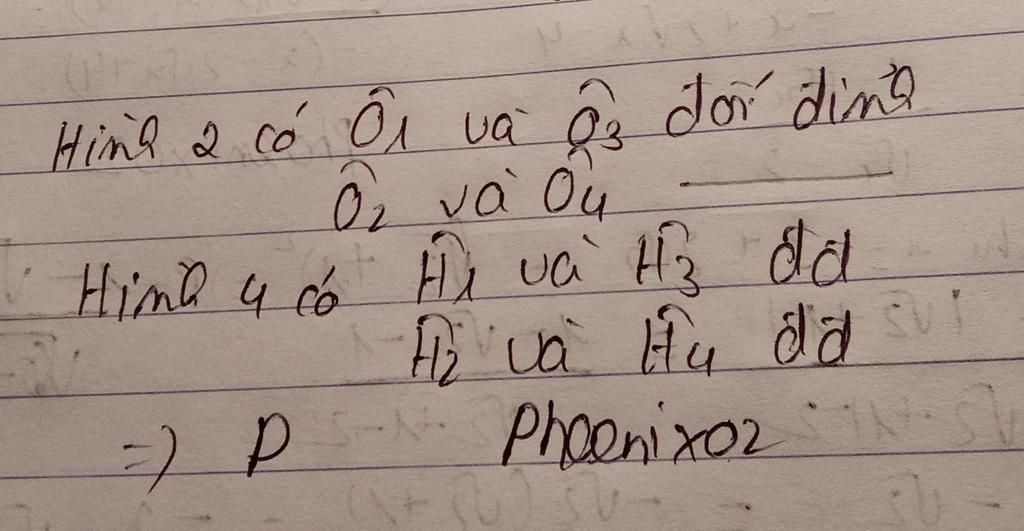 Hình 2 có Ô1 và Ô3 đối đỉnh
Ô2 và Ô4 ———
Hình 4 có Ĥ1 và Ĥ3 đđ
Ĥ2 và Ĥ4 đđ
=) D Phoenix02